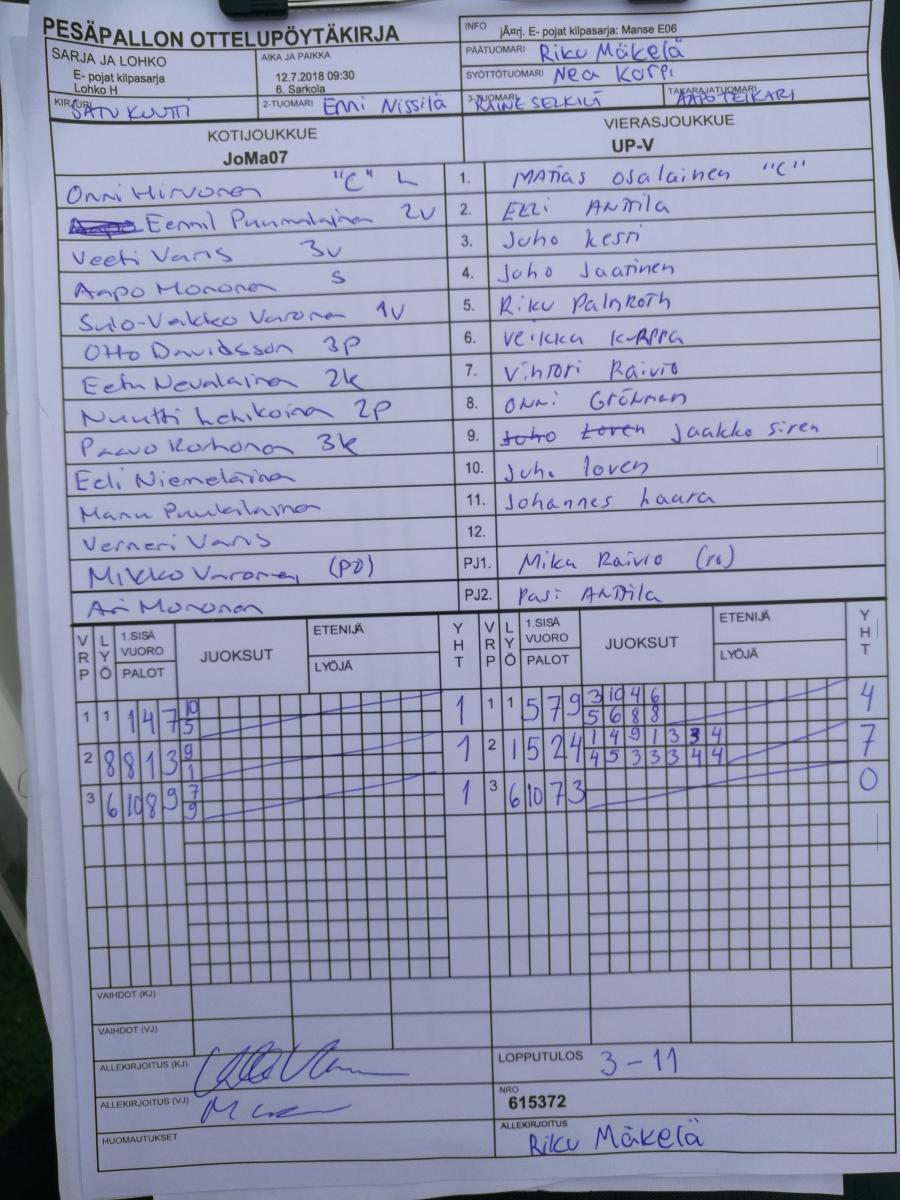 PESÄPALLON OTTELUPÖYTÄKIRJA
INFO jÃ¤rj. E- pojat kilpasarja: Manse E06
SARJA JA LOHKO
E- pojat kilpasarja
Lohko H
AIKA JA PAIKKA
12.7.2018 09:30
6. Sarkola
PÄÄTUOMARI Riku Mäkelä
SYÖTTÖTUOMARI Nea Korpi
KIRJURI SATU KUUTTI
2-TUOMARI Enni Nissilä
3-TUOMARI RAINE SELKILÄ
TAKARAJATUOMARI AAPO TEIKARI
KOTIJOUKKUE
JoMa07
VIERASJOUKKUE
UP-V
Onni Hirvonen "C" L 1. Matias Osalainen "C"
Eemil Puumalainen 2v 2. Elli Anttila
Veeti Varis 3v 3. Juho Kesti
Aapo Mononen S 4. Juho Jaatinen
Sulo-Veikko Varonen 1v 5. Riku Palnroth
Otto Davidsson 3p 6. Veikka Kurppa
Eetu Nevalainen 2k 7. Vihtori Raivio
Nuutti Lehikoinen 2p 8. Onni Grönman
Paavo Korhonen 3k 9. Juho Loven Jaakko Siren
Eeli Niemeläinen 10. Juho Loven
Manu Puukilainen 11. Johannes Haara
Verneri Varis 12.
Mikko Varonen (PJ) PJ1. Mika Raivio
Ari Mononen PJ2. Pasi Anttila
VRP LYÖ 1.SISÄ VUORO PALOT JUOKSUT ETENIJÄ LYÖJÄ YHT VRP LYÖ 1.SISÄ VUORO PALOT JUOKSUT ETENIJÄ LYÖJÄ YHT
1 1 1 4 7 10 1 1 1 5 7 9 3 10 4 6 4
5 5 6 8 8
2 8 8 1 3 9 1 2 1 5 2 4 1 4 9 1 3 3 4 7
1 4 5 3 3 3 4 4
3 6 10 8 9 7 1 3 6 10 7 3 0
9
VAIHDOT (KJ)
VAIHDOT (VJ)
ALLEKIRJOITUS (KJ)
LOPPUTULOS 3 - 11
ALLEKIRJOITUS (VJ)
NRO
615372
HUOMAUTUKSET
ALLEKIRJOITUS
Riku Mäkelä